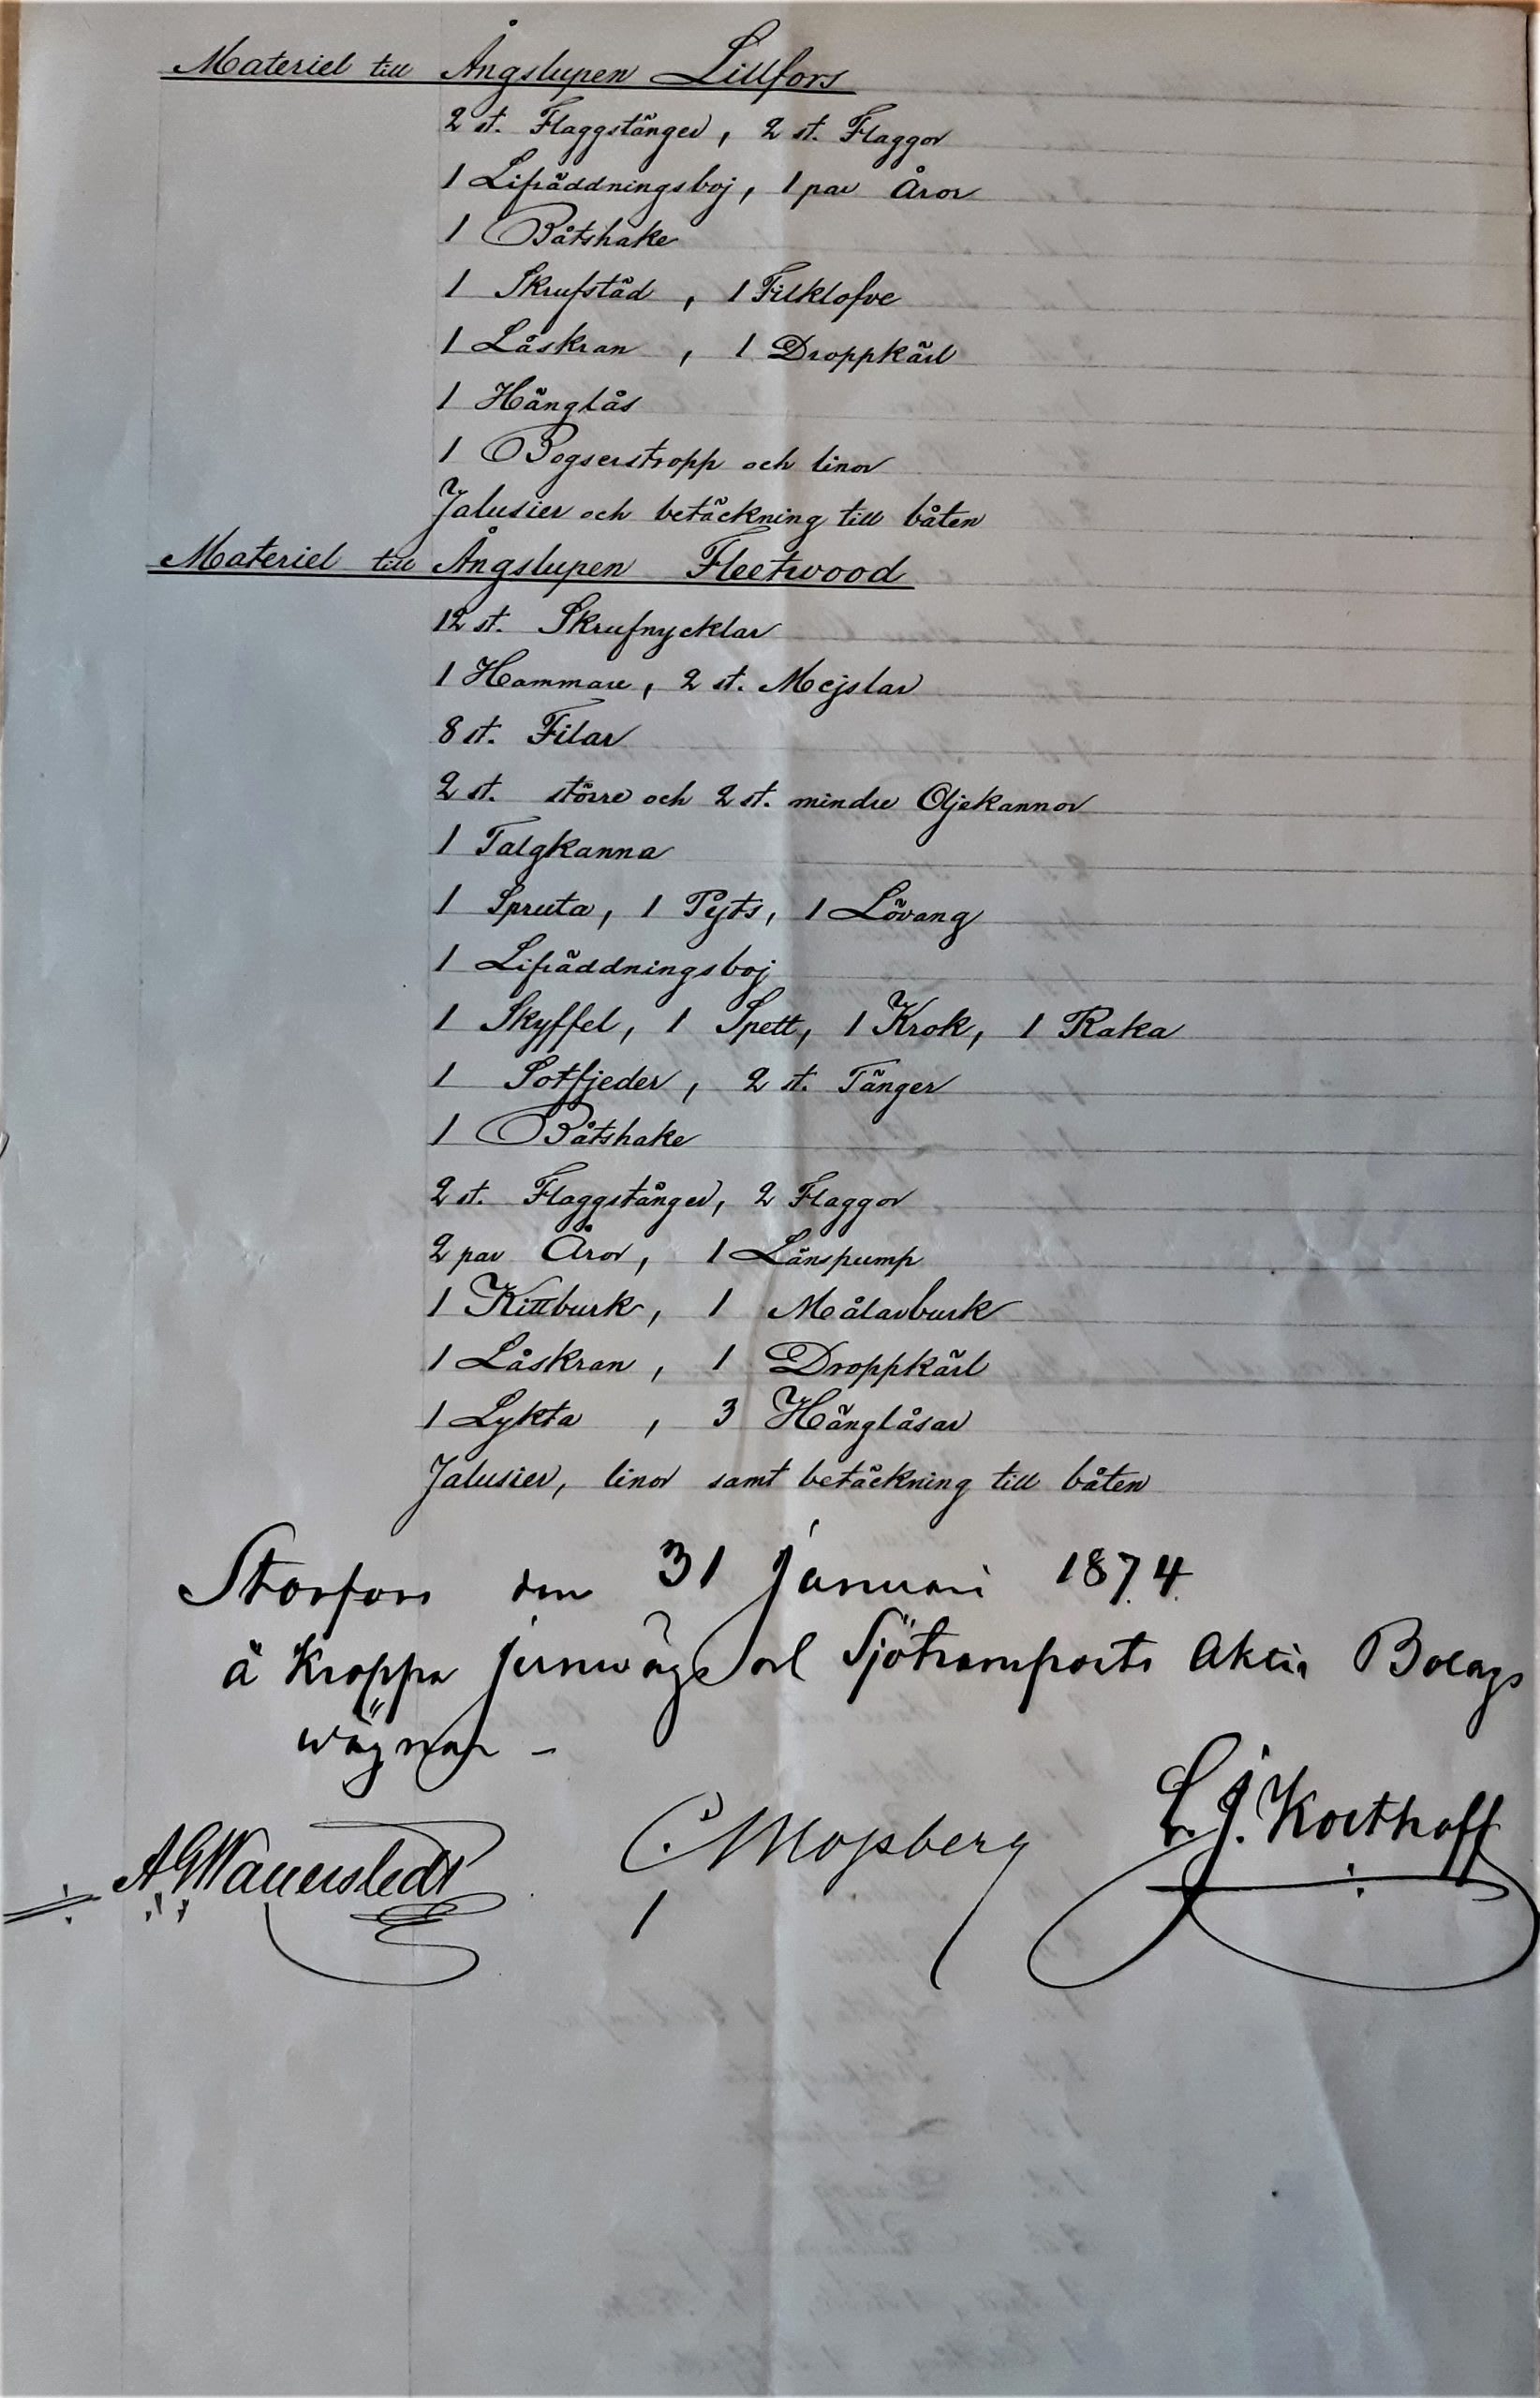 Materiel till Ångslupen Lillfors
2 st. Flaggstänger, 2 st. Flaggor
1 Lifräddningsboj, 1 par Åror
1 Båtshake
1 Skrufstäd, 1 Filklofve
1 Låskran, 1 Droppkärl
1 Hänglås
1 Bogserstropp och linor
Jalusier och betäckning till båten
Materiel till Ångslupen Fleetwood
12 st. Skrufnycklar
1 Hammare, 2 st. Mejslar
8 st. Filar
2 st. större och 2 st. mindre Oljekannor
1 Talgkanna
1 Spruta, 1 Pyts, 1 Lövang
1 Lifräddningsboj
1 Skyffel, 1 Spett, 1 Krok, 1 Raka
1 Sotfjeder, 2 st. Tänger
1 Båtshake
2 st. Flaggstänger, 2 Flaggor
2 par Åror, 1 Länspump
1 Kittburk, 1 Målarburk
1 Låskran, 1 Droppkärl
1 Lykta, 3 Hänglåsar
Jalusier, linor samt betäckning till båten
Storfors den 31 januari 1874.
å Kroppa jernwägs och Sjötransports Aktie Bolags
wägnar –
AGWallerstedt C Mossberg L. J. Korthoff